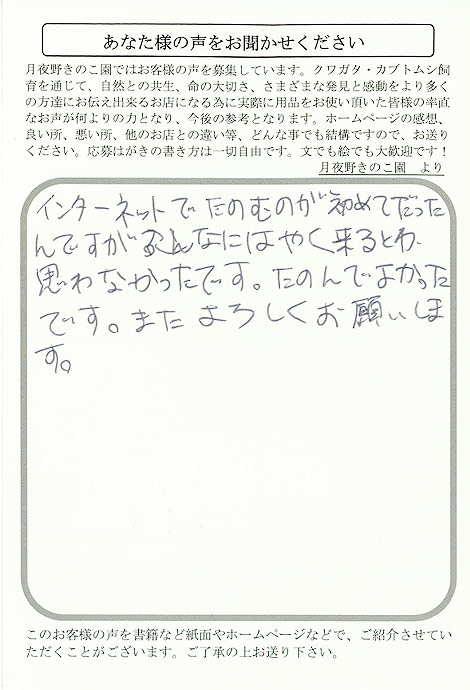 あなた様の声をお聞かせください
月夜野きのこ園ではお客様の声を募集しています。クワガタ・カブトムシ飼
育を通じて、自然との共生、命の大切さ、さまざまな発見と感動をより多く
の方達にお伝え出来るお店になる為に実際に用品をお使い頂いた皆様の率直
なお声が何よりの力となり、今後の参考となります。ホームページの感想、
良い所、悪い所、他のお店との違い等、どんな事でも結構ですので、お送り
ください。応募はがきの書き方は一切自由です。文でも絵でも大歓迎です！
月夜野きのこ園　より
インターネットでたのむのが初めてだった
んですがこんなにはやく来るとわ
思わなかったです。たのんでよかった
です。またよろしくお願いしま
す。
このお客様の声を書籍など紙面やホームページなどで、ご紹介させてい
ただくことがございます。ご了承の上お送り下さい。